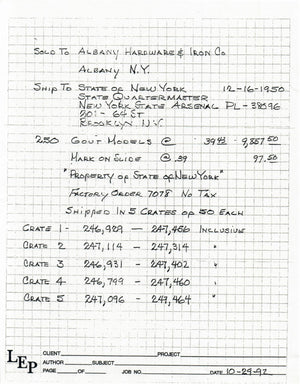 SOLD TO ALBANY HARDWARE & IRON CO
ALBANY N.Y.
SHIP TO STATE OF NEW YORK 12-16-1950
STATE QUARTERMASTER
NEW YORK STATE ARSENAL PL-38596
201 - 64 ST
BROOKLYN N.Y.
250 GOVT MODELS @ 9,857.50
MARK ON SLIDE @ .39 97.50
"PROPERTY OF STATE OF NEW YORK"
FACTORY ORDER 7078 NO TAX
SHIPPED IN 5 CRATES OF 50 EACH
CRATE 1 - 246,929 - 247,466 INCLUSIVE
CRATE 2 247,114 - 247,314 "
CRATE 3 246,931 - 247,402 "
CRATE 4 246,799 - 247,460 "
CRATE 5 247,096 - 247,464 "
LEP
CLIENT PROJECT
AUTHOR SUBJECT
PAGE OF JOB NO. DATE 10-29-92